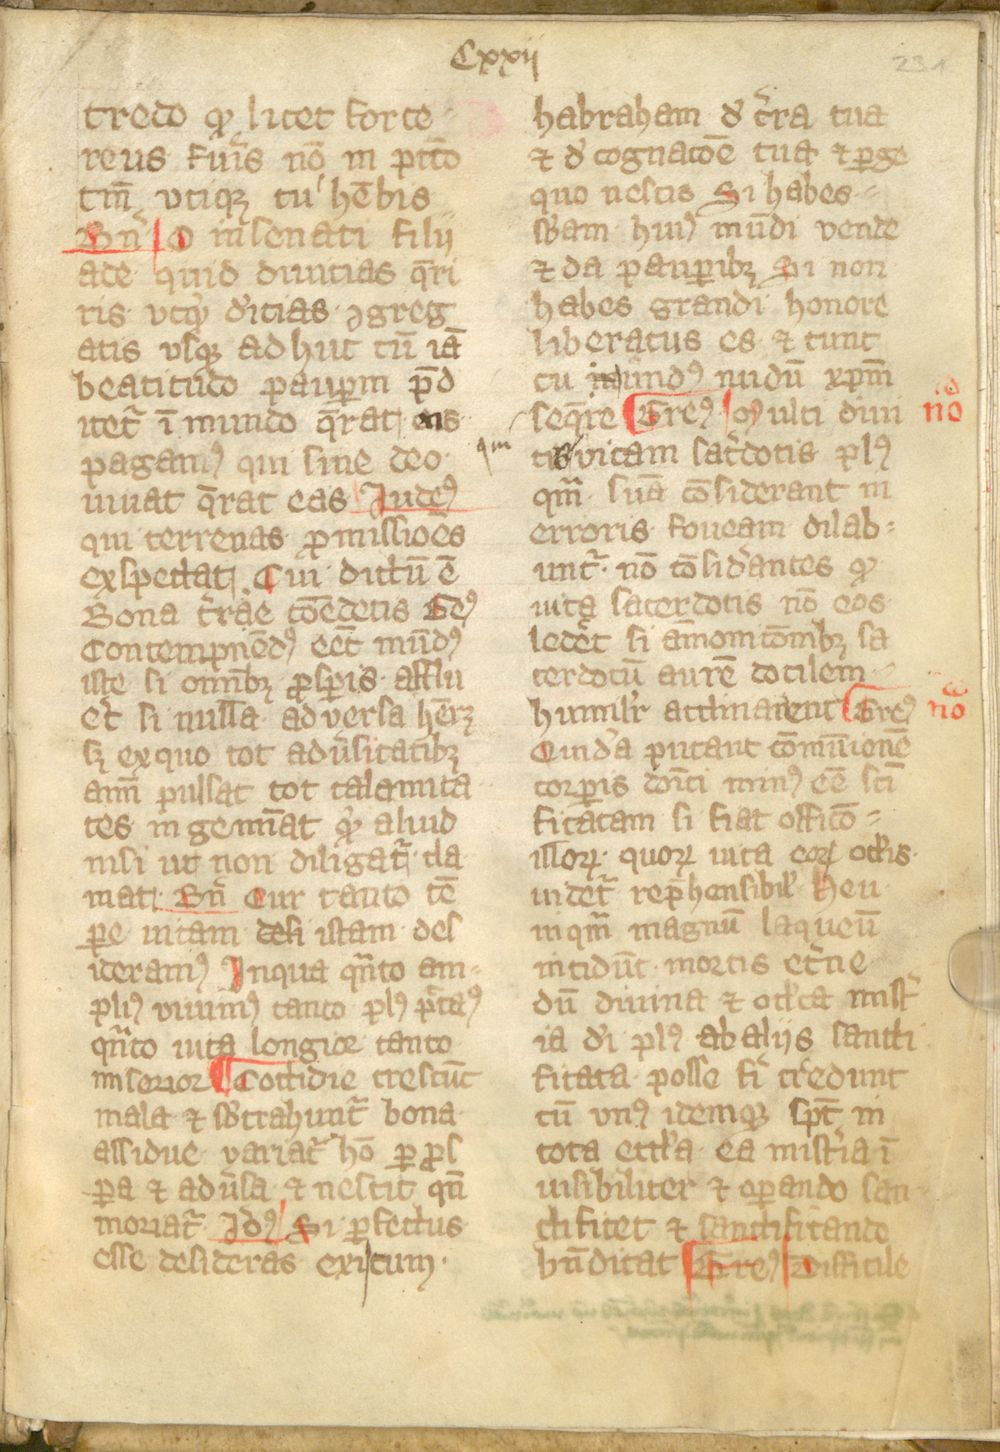 Cxxij
231
credo qͥ licet forte
reus fuͥs nō in pctō
tm̄ vtiqꝫ tuͥ hēbis
Bn̄ O insenati filij
ade quid diuitias q̄ri
ris vtqͥ dͥitias ꝯgreg
atis vsqꝫ adhuc cū iā
beatitudo pauꝑm p̄d
icet᷑ ī mundo q̄rat eas
paganꝰ qui sine deo
viuat q̄rat eas Iudeꝰ
qui terrenas ꝓmissiōes
exspectat Cui dictū ē
Bona t̄rae cōedetis Gͤeꝰ
Contempnēdꝰ eēt mūdꝰ
iste si om̄ibꝫ ꝓsꝑis afflu
eͥt si nulla adversa hēꝫ
sꝫ exquo tot adūsitatibꝫ
aīm pulsat tot calamita
tes ingemīat qͥ aliud
nisi ut non diligat᷑ cla
mat Bn̄ Cur tanto tē
ꝑe vitam istam des
ideramꝰ Inqua qn̄to am
plꝰ viuimꝰ tanto plꝰ p̄caꝰ
qn̄to vita longior tanto
miserior Cottidie crescūt
mala ⁊ sb̄trahunt᷑ bona
assidue variat᷑ hō ꝑ ꝓs
ꝑa ⁊ adūsa ⁊ nescit qn̄
moriat᷑ Idꝰ Si ꝑfectus
esse desideras exi cum
habraham dͤ t̄ra tua
⁊ dͤ cognacōe tua ⁊ ꝑge
quo nescis Si habes
sb̄am huiꝰ mūdi vende
⁊ da pauꝑibꝫ Si non
habes grandi honore
liberatus es ⁊ tunc
tu nudū xp̄m
seq̄re Greꝰ Multi diui
no
tis vitam sac̄dotis plꝰ
qm
qm̄ suā cōsiderant in
erroris foueam dilab
unt᷑ nō cōsidͤantes qͥ
vita sacerdotis nō eos
ledͤet si āmonicōibꝫ sa
cerdotū aurē docilem
humilīr acclinarent Greꝰ
no
Quidā putant cōmūionē
corꝑis dōīci minꝰ eē scī
ficatam si fiat officō
illoꝝ quoꝝ vita eoꝝ oclīs
videt᷑ rep̄hensibilͥ Heu
inqm̄ magnū laqueū
incidūt mortis et̄ne
dū divina ⁊ oclͣta mist̄
ia dͥi plꝰ ab alijs sancti
ficata posse fi c̄redunt
cū vnꝰ idemqꝫ spc̄ in
tota ecclͣa ea mist̄ia ī
uisibiliter ⁊ oꝑando san
ctificet ⁊ sanctificando
bn̄dicat Greꝰ Difficile